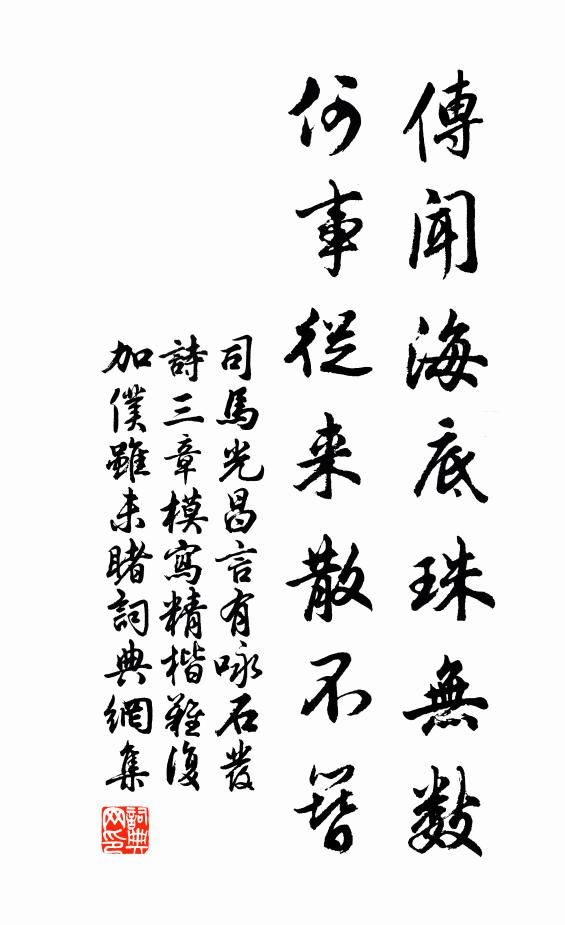 傳聞海底珠無數
何事從来散不簪
司馬光昌言有咏石發
詩三章模寫精楷難復
加僕雖未睹詞典網集
詞典
网印